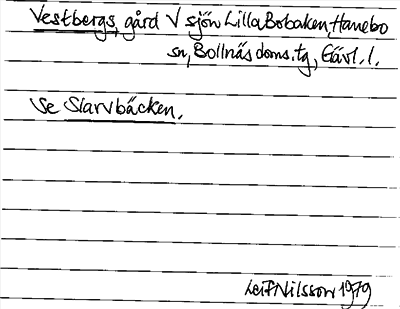 Vestbergs, gård V sjön Lilla Bobaken, Hanebo
sn, Bollnäs doms.tg, Gävl. l.
Se Slarvbäcken.
Leif Nilsson 1979